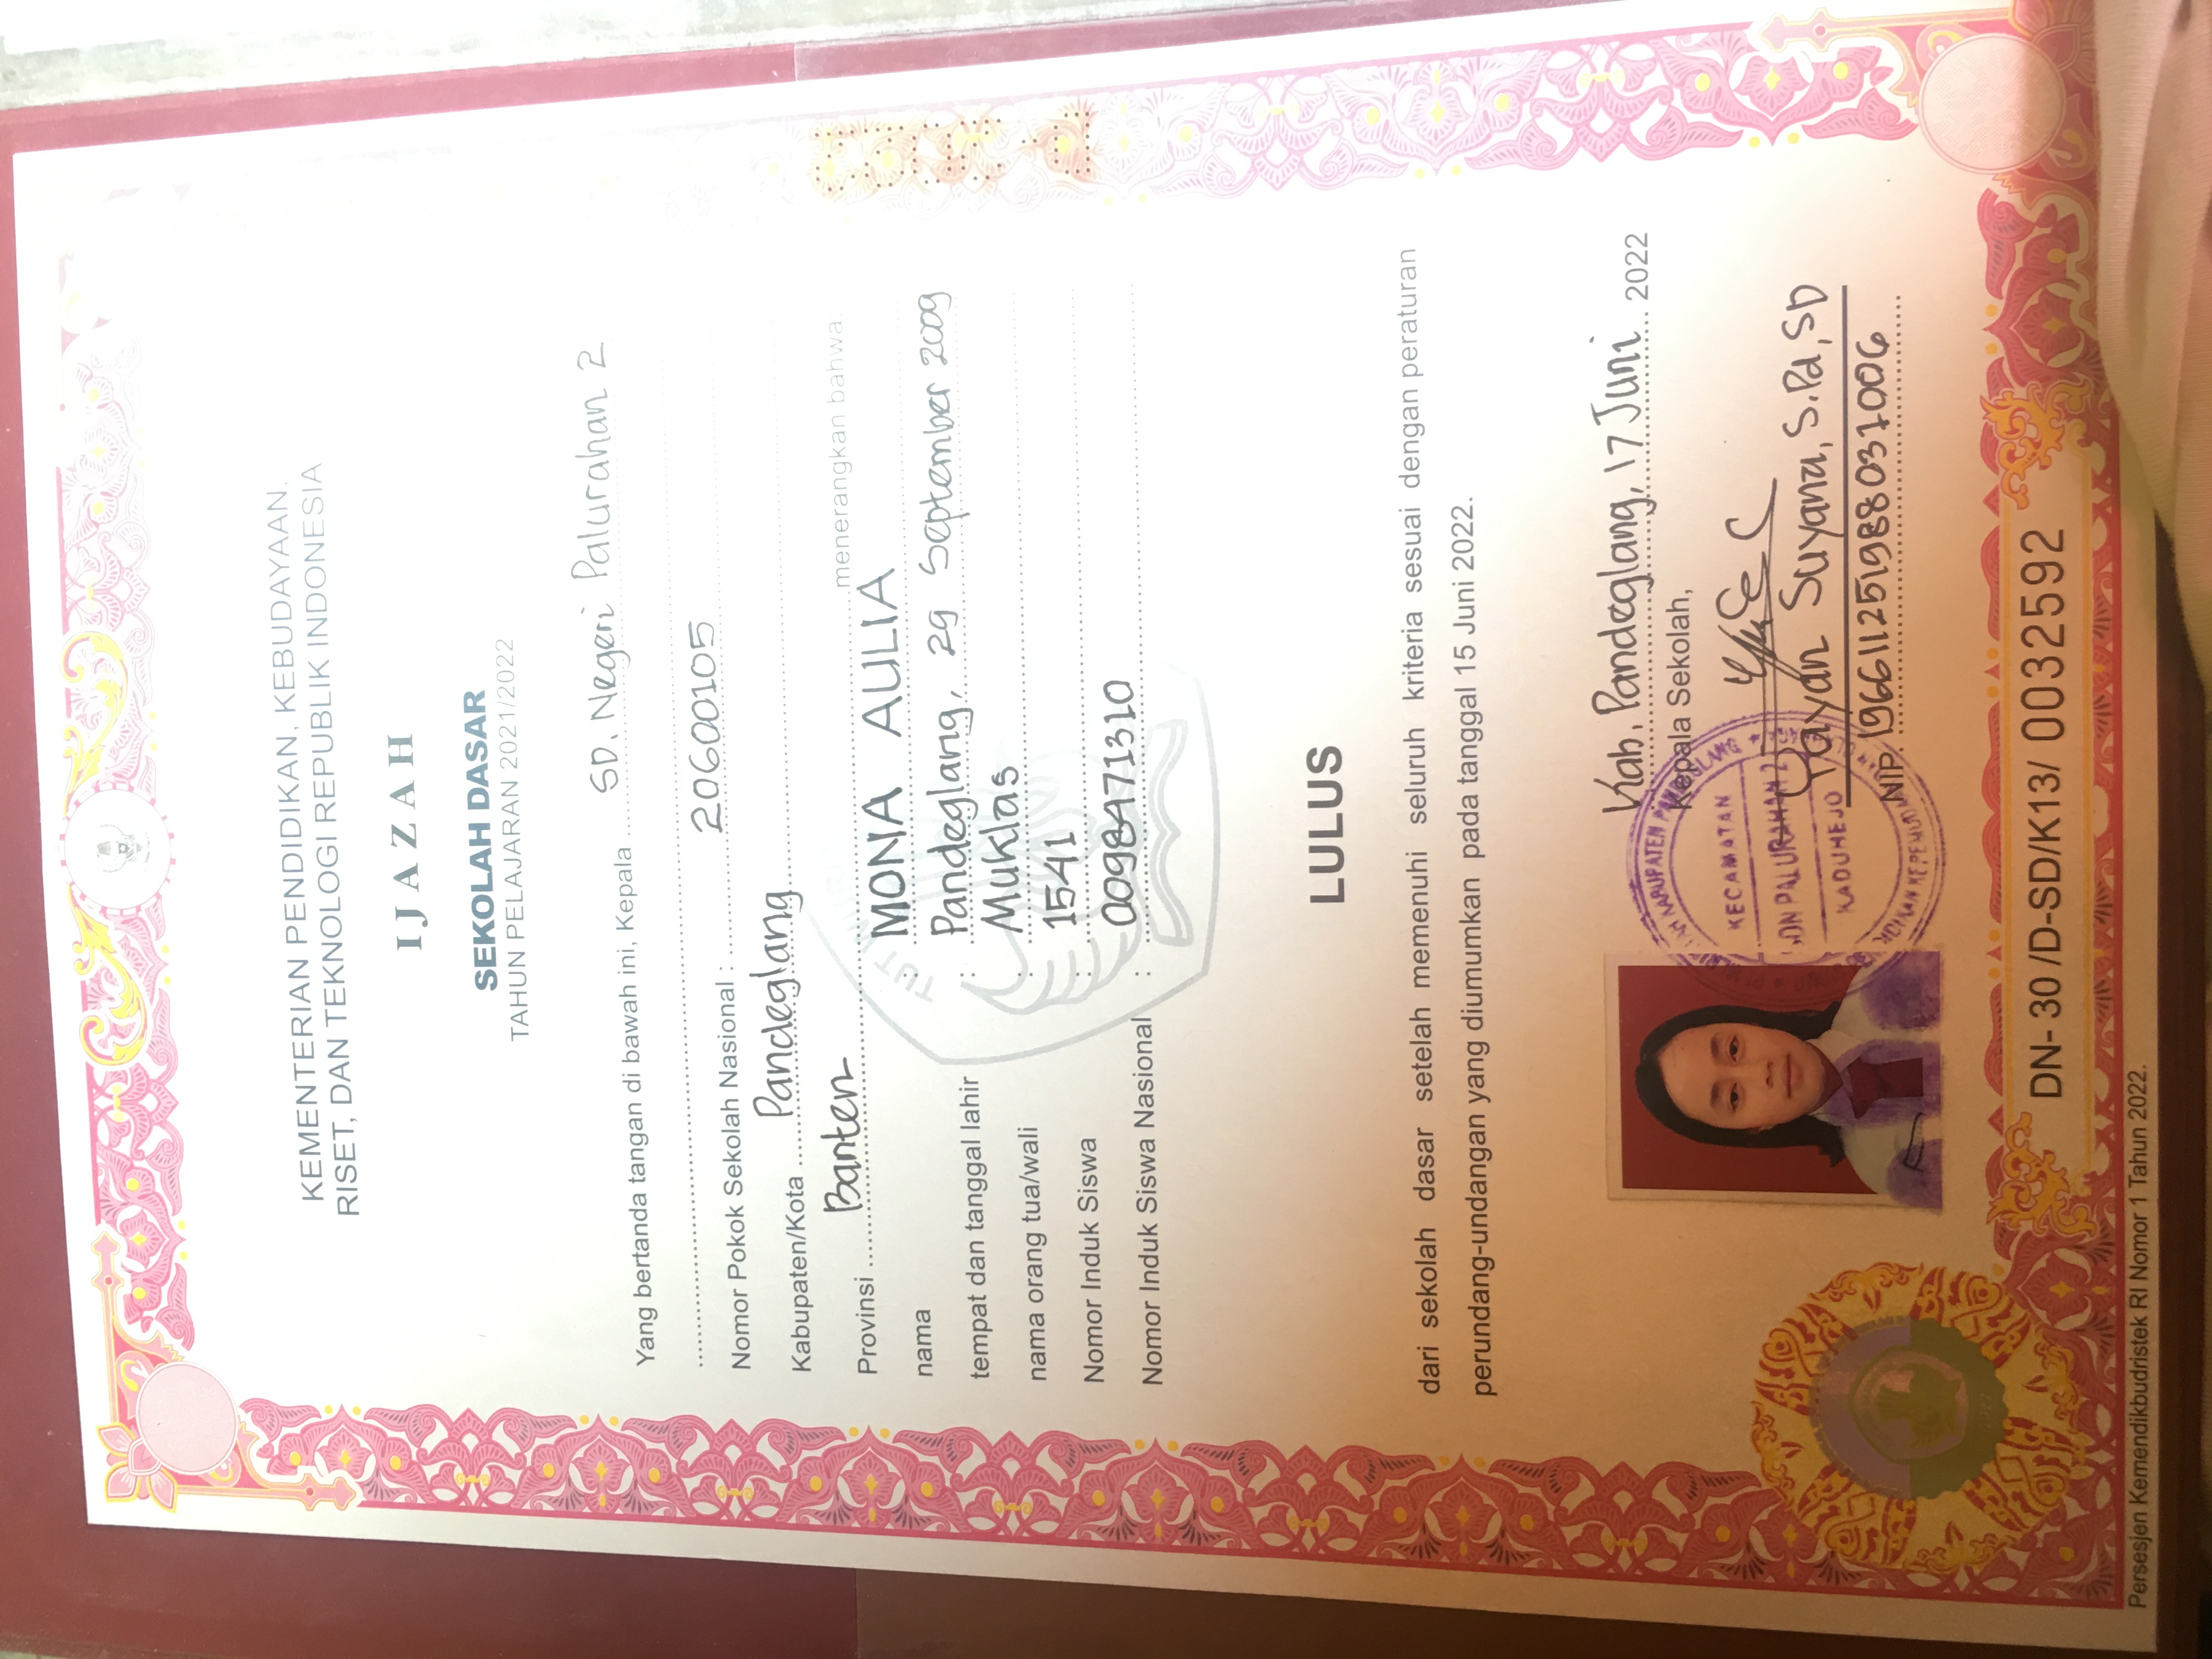 KEMENTERIAN PENDIDIKAN, KEBUDAYAAN,
RISET, DAN TEKNOLOGI REPUBLIK INDONESIA
IJAZAH
SEKOLAH DASAR
TAHUN PELAJARAN 2021/2022
Yang bertanda tangan di bawah ini, Kepala SD. Negeri Palurahan 2
Nomor Pokok Sekolah Nasional : 20600105
Kabupaten/Kota Pandeglang
Provinsi Banten menerangkan bahwa
nama : MONA AULIA
tempat dan tanggal lahir : Pandeglang, 29 September 2009
nama orang tua/wali : Muklas
Nomor Induk Siswa : 1541
Nomor Induk Siswa Nasional : 0098471310
TUT WURI
LULUS
dari sekolah dasar setelah memenuhi seluruh kriteria sesuai dengan peraturan
perundang-undangan yang diumumkan pada tanggal 15 Juni 2022.
Kab. Pandeglang, 17 Juni 2022
Kepala Sekolah,
KABUPATEN PANDEGLANG
KECAMATAN
SDN PALURAHAN 2
KADUHEJO
Yayan Suyana, S.Pd, SD
NIP. 196611251988031006
DN- 30 /D-SD/K13/ 0032592
Persesjen Kemendikbudristek RI Nomor 1 Tahun 2022.